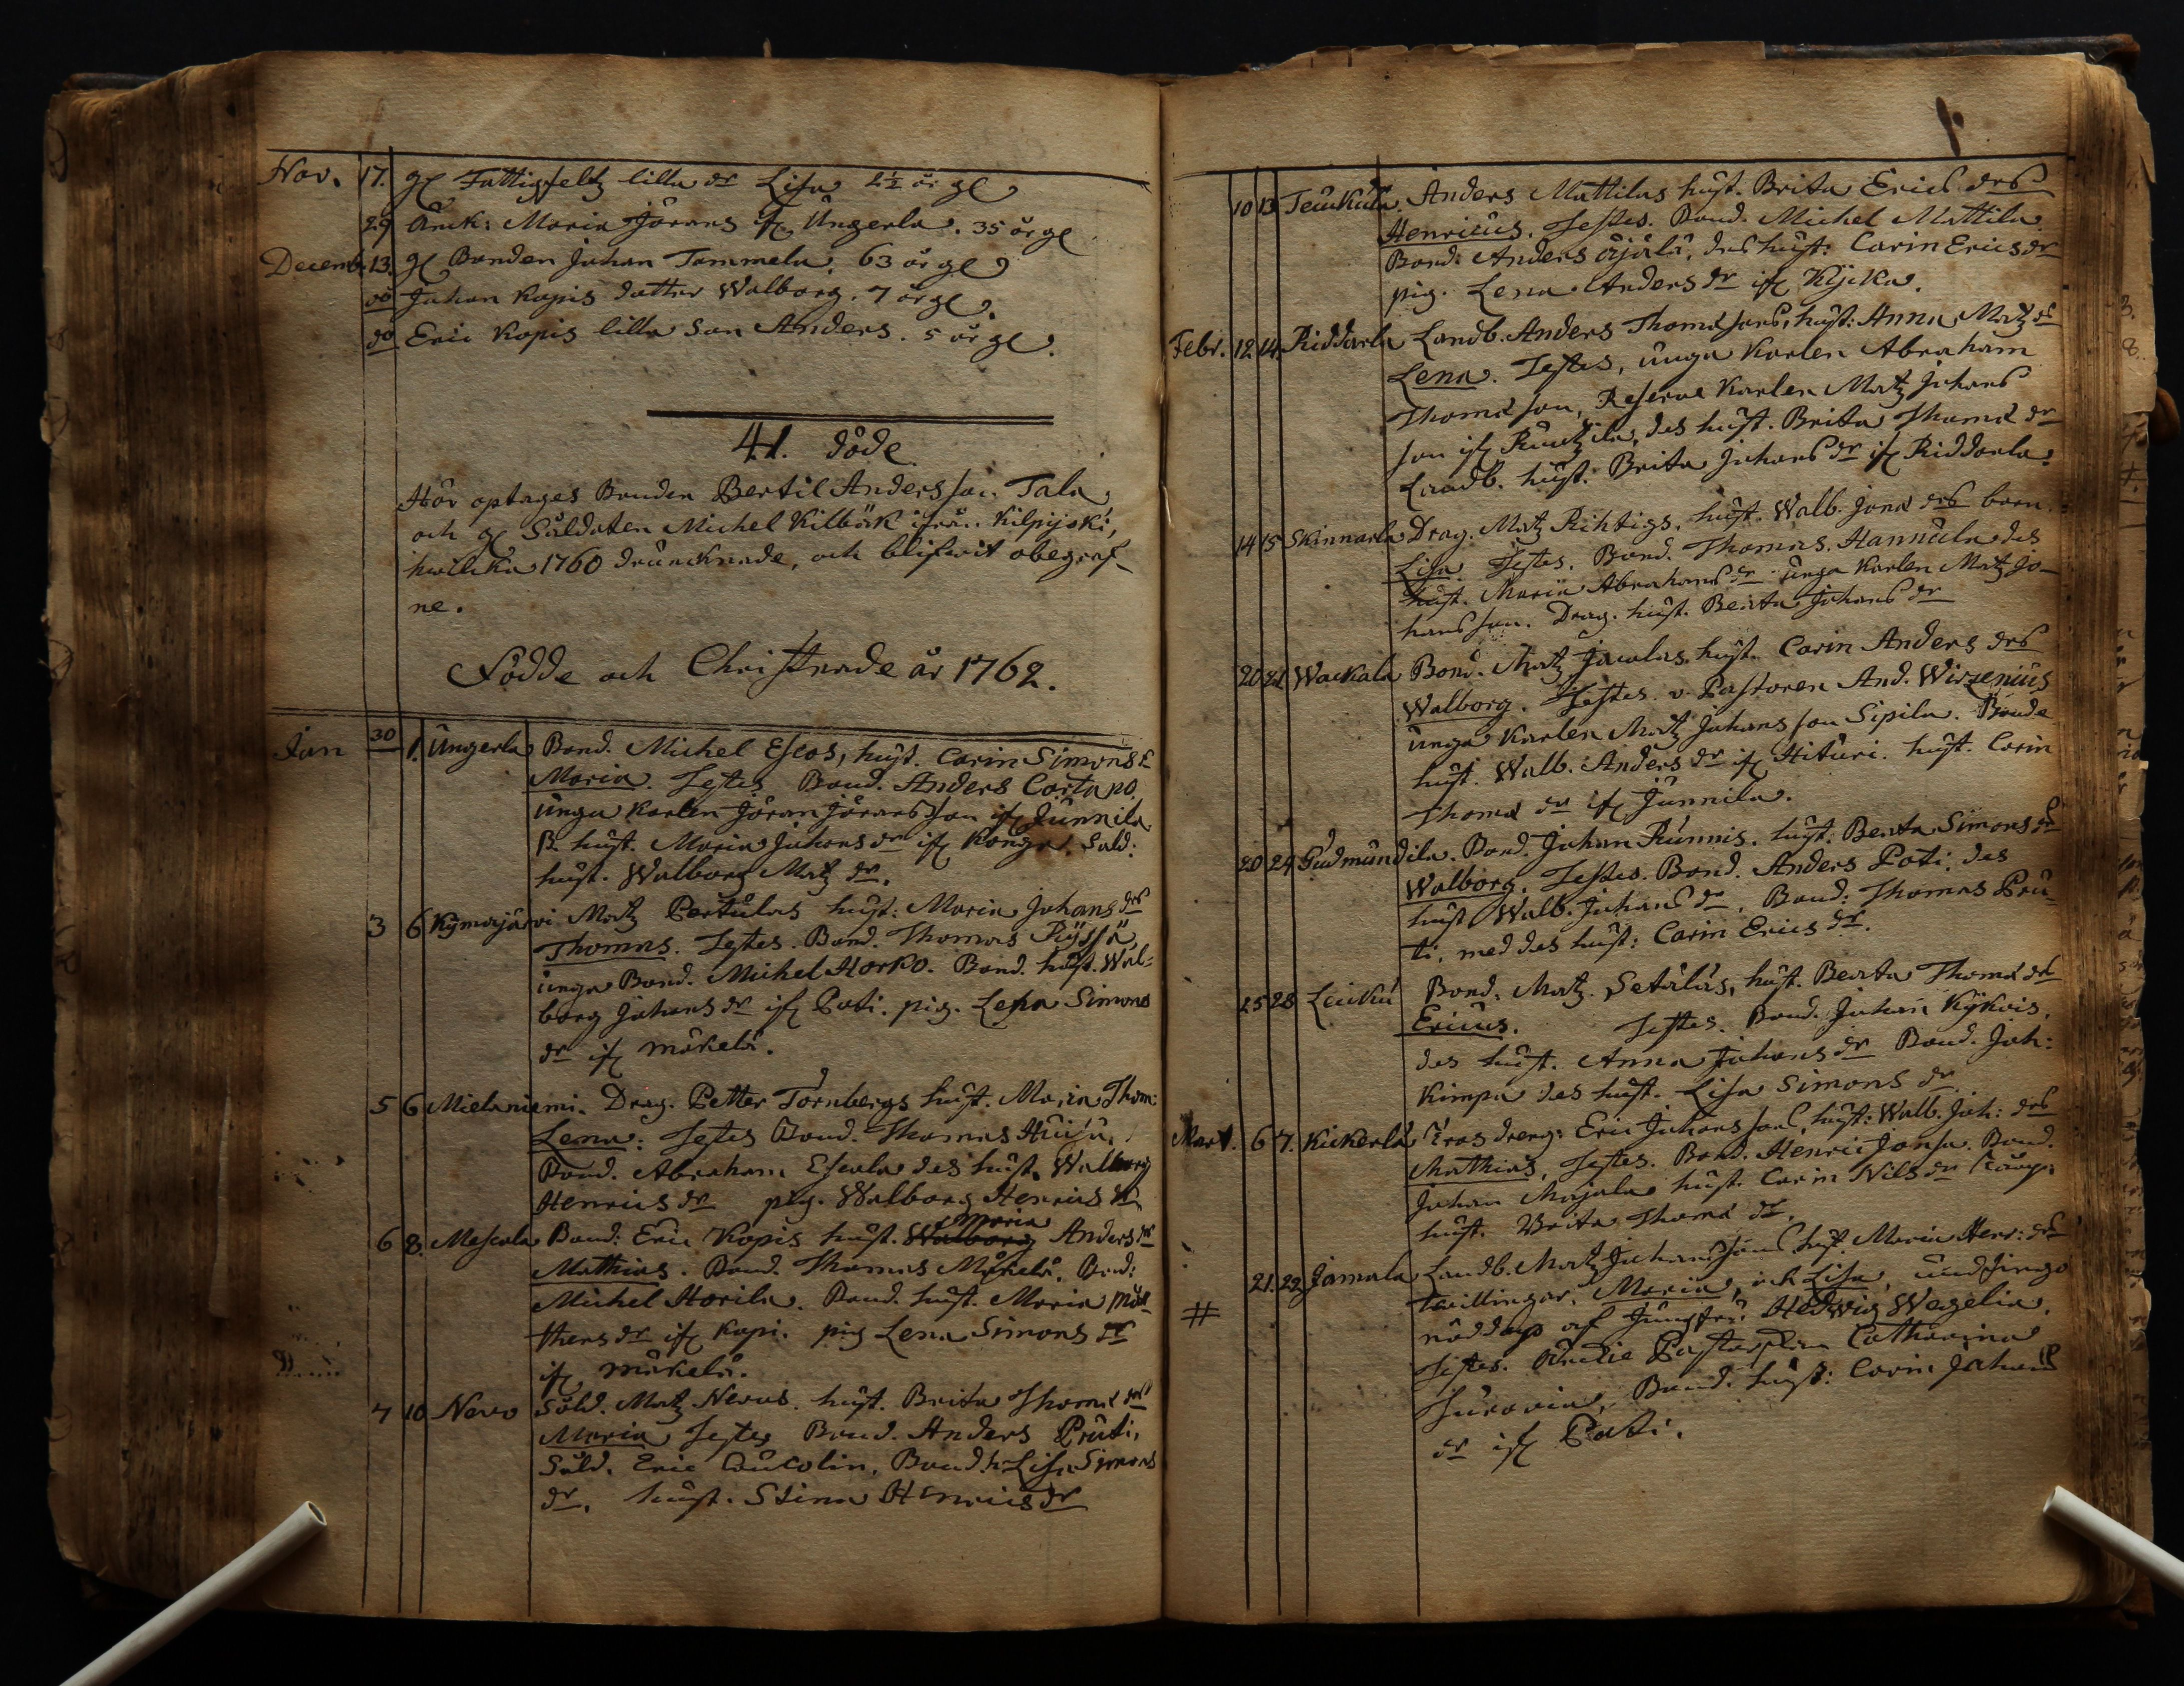 Nov. 17. gl Fattigfeltz lilla dr Lisa 2½ år gl
29 Änk: Maria Jörans if. Ungerla. 35 år gl
Decemb. 13. gl Bonden Johan Tammela. 63 år gl
do Johan Kopis dotter Walborg. 7 år gl.
do Eric Kopis lilla Son Anders. 5 år gl.
41. döde
Här optages Bonden Bertil Andersson Tala,
och gl Soldaten Michel Kilbäk ifrån Kilpijoki,
hwilka 1760 drunknade, och blifwit obegraf-
ne.
Födde och Christnade år 1762.
Jan 30 1. Ungerla Bond. Michel Escos, hust. Carin Simons
Maria. Testes Bond. Anders Cortapo.
unga Karlen Jöran Jöransson if Junnila
B. hust. Maria Johans dr if Konga. Sold:
hust. Walborg Matz dr.
3 6 Kymajärvi Matz Pertulas hust: Maria Johans drs
Thomas. Testes. Bond. Thomas Ryssä
unga Bond. Michel Horko. Bond. hust. Wal-
borg Johans dr if Poti. pig. Lena Simons
dr if mäkelä.
5 6 Mielaniemi. Drag. Petter Törnbergs hust. Maria Thom:
Lena: Testes Bond. Thomas Huisu,
Bond. Abraham Escola des hust. Walborg
Henrics dr pig. Walborg Henrics dr
6 8. Mascala Bond: Eric Kopis hust. Walborg Maria Anders drs
Mathias. Bond. Thomas Mäkelä. Bond:
Michel Horila. Bond. hust. Maria Mår-
thens dr if Kopi. pig Lena Simons dr
if mäkelä.
7 10 Nervo Sold. Matz Nervus. hust. Brita Thomæ drs
Maria Testes Bond. Anders Pruti,
Sold. Eric Cucolin, Bond. h. Lisa Simons
dr. hust. Stina Henrics dr
10 13 Teukula. Anders Mattilas hust. Brita Erics drs
Henricus. Testes. Bond. Michel Mattila.
Bond: Anders äjälä, des hust: Carin Erics dr
pig. Lena Anders dr if Kijka.
Febr. 12. 14. Riddarla Landb. Anders Thomæ sons, hust: Anna Matz drs
Lena. Testes, unga Karlen Abraham
Thomæ son, Reserve Karlen Matz Johans
son if Runtzila, des hust. Brita Thomæ dr
Landb. hust: Brita Johans dr if Riddarla.
14 15 Skinnarla Drag. Matz Richtigs, hust. Walb. Jonæ drs barn.
Lisa. Testes. Bond. Thomas Hannula des
hust. Maria Abrahams dr unga Karlen Matz Jo-
hansson. Drag. hust. Beata Johans dr
20 21 Wackala Bond. Matz Jacolas, hust. Carin Anders drs
Walborg. Testes. v. Pastoren And. Wirzenius
unga Karlen Matz Johans son Sipila. Bonde
hust. Walb. Anders dr if Hituri. hust. Carin
Thomæ dr if Junnila.
20 24 Gudmundila. Bond. Johan Runnis. hust: Beata Simons drs
Walborg. Testes. Bond. Anders Poti. des
hust Walb. Johans dr. Bond: Thomas Pru-
ti, med des hust: Carin Erics dr.
25 28 Leuku Bond. Matz Setälas, hust. Beata Thomæ drs
Ericus. Testes. Bond. Johan Kykvis,
des hust. Anna Johans dr Bond. Joh:
Kimpa des hust. Lisa Simons dr
Mart. 6 7. Kickerla dreng: Eric Johans son, hust: Walb. Joh: drs
Mathias, Testes. Bond. Henric Jonsa. Bond.
Johan Majala hust. Carin Nils dr
hust. Brita Thomæ dr.
21. 22 Jamala Landb. Matz Johanssons hust. Maria Henr: drs
# Twillingar. Maria, och Lisa, undfingo
nöddop af Jungfru Hedwig Wegelia.
Testes. Pastorskan Catharina
Bond. hust: Carin Johans
dr if Poti.